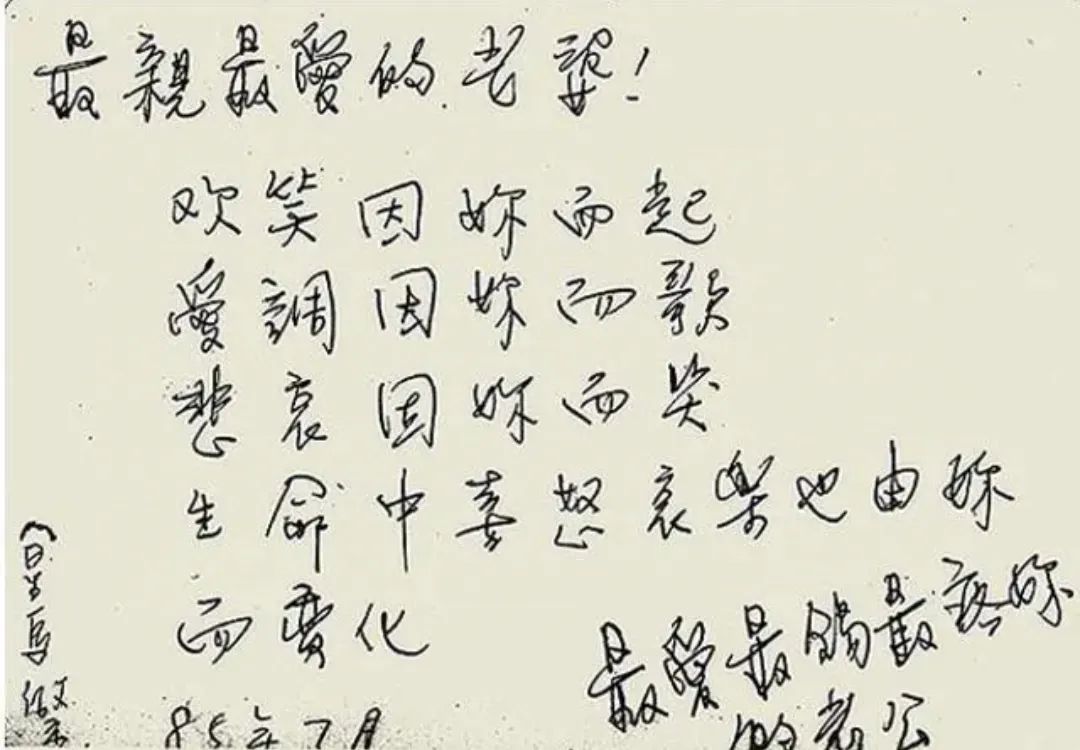 最親最愛的老婆！
欢笑因妳而起
愛調因妳而歌
悲哀因妳而哭
生命中喜怒哀樂也由妳
而變化
最愛最錫最疼妳
的老公
85年7月